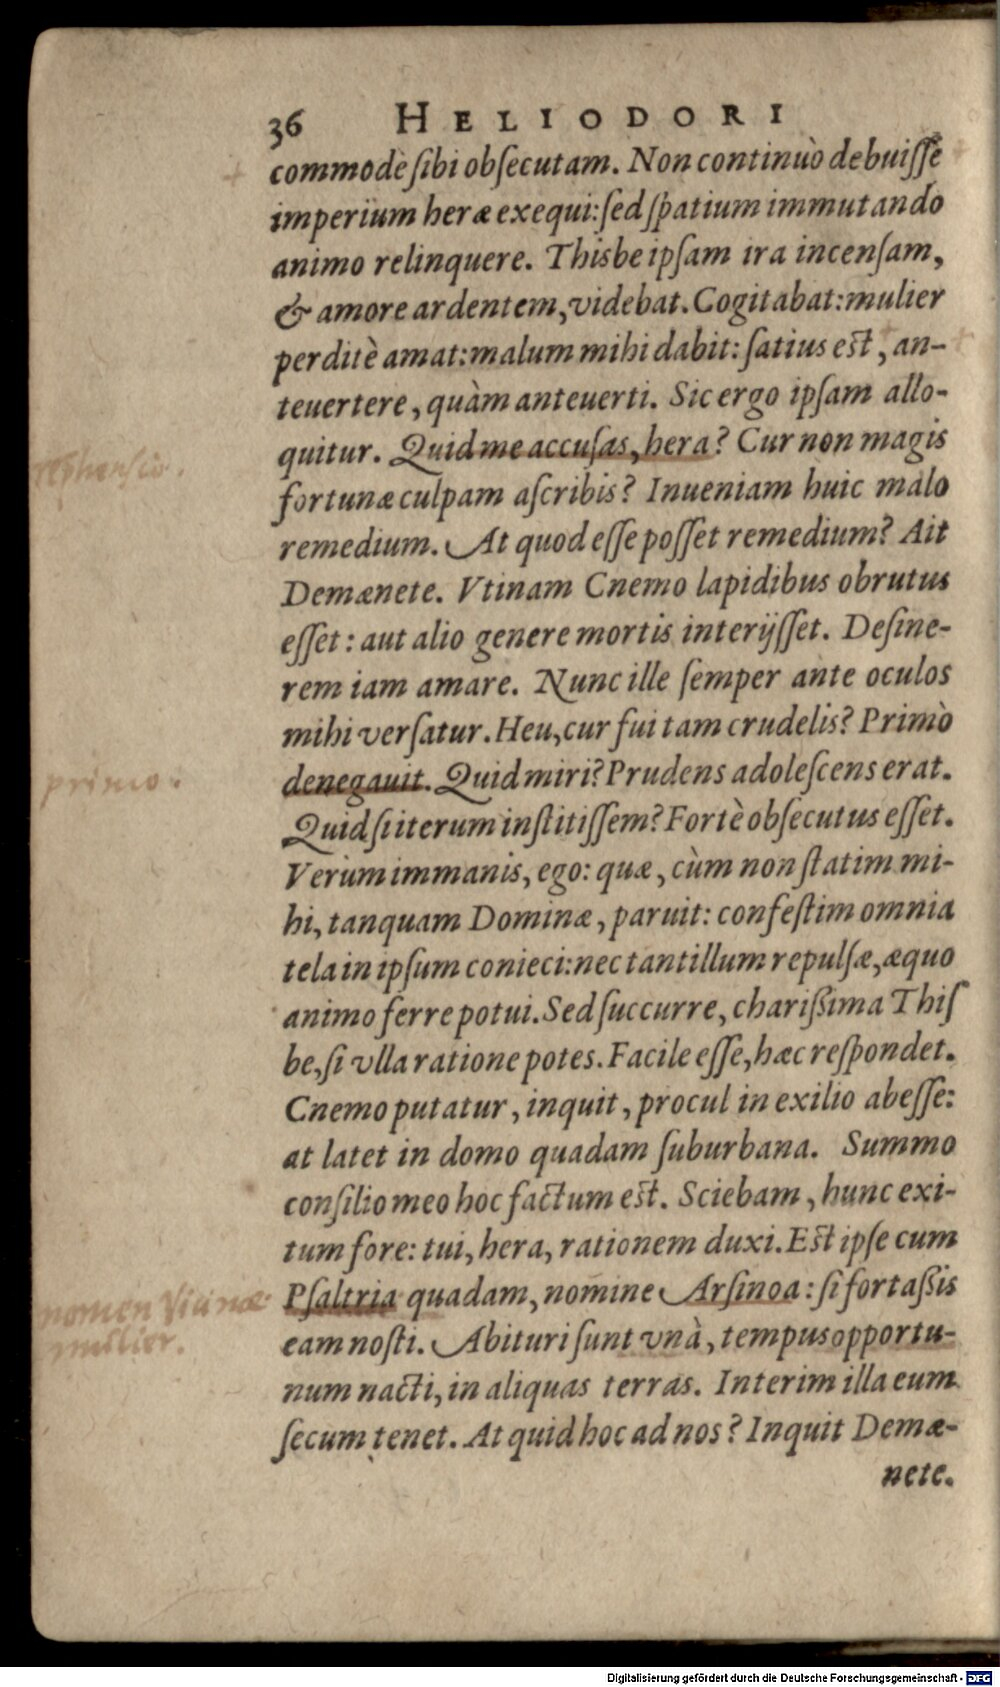 36 HELIODORI
commodè ſibi obſecutam. Non continuò debuiſſe
imperium heræ exequi: ſed ſpatium immutando
animo relinquere. Thisbe ipſam ira incenſam,
& amore ardentem, videbat. Cogitabat: mulier
perditè amat: malum mihi dabit: ſatius eſt, an-
teuertere, quàm anteuerti. Sic ergo ipſam allo-
quitur. Quid me accuſas, hera? Cur non magis
fortunæ culpam aſcribis? Inueniam huic malo
remedium. At quod eſſe poſſet remedium? Ait
Demænete. Vtinam Cnemo lapidibus obrutus
eſſet: aut alio genere mortis interijſſet. Deſine-
rem iam amare. Nunc ille ſemper ante oculos
mihi verſatur. Heu, cur fui tam crudelis? Primò
primo.
denegauit. Quid miri? Prudens adoleſcens erat.
Quid ſi iterum inſtitiſſem? Fortè obſecutus eſſet.
Verùm immanis, ego: quæ, cùm non ſtatim mi-
hi, tanquam Dominæ, paruit: confeſtim omnia
tela in ipſum conieci: nec tantillum repulſæ, æquo
animo ferre potui. Sed ſuccurre, charißima Thiſ
be, ſi vlla ratione potes. Facile eſſe, hæc reſpondet.
Cnemo putatur, inquit, procul in exilio abeſſe:
at latet in domo quadam ſuburbana. Summo
conſilio meo hoc factum eſt. Sciebam, hunc exi-
tum fore: tui, hera, rationem duxi. Eſt ipſe cum
nomen
Pſaltria quadam, nomine Arſinoa: ſi fortaßis
mulier.
eam noſti. Abituri ſunt vnà, tempus opportu-
num nacti, in aliquas terras. Interim illa eum
ſecum tenet. At quid hoc ad nos? Inquit Demæ-
nete.
Digitalisierung gefördert durch die Deutsche Forschungsgemeinschaft - DFG